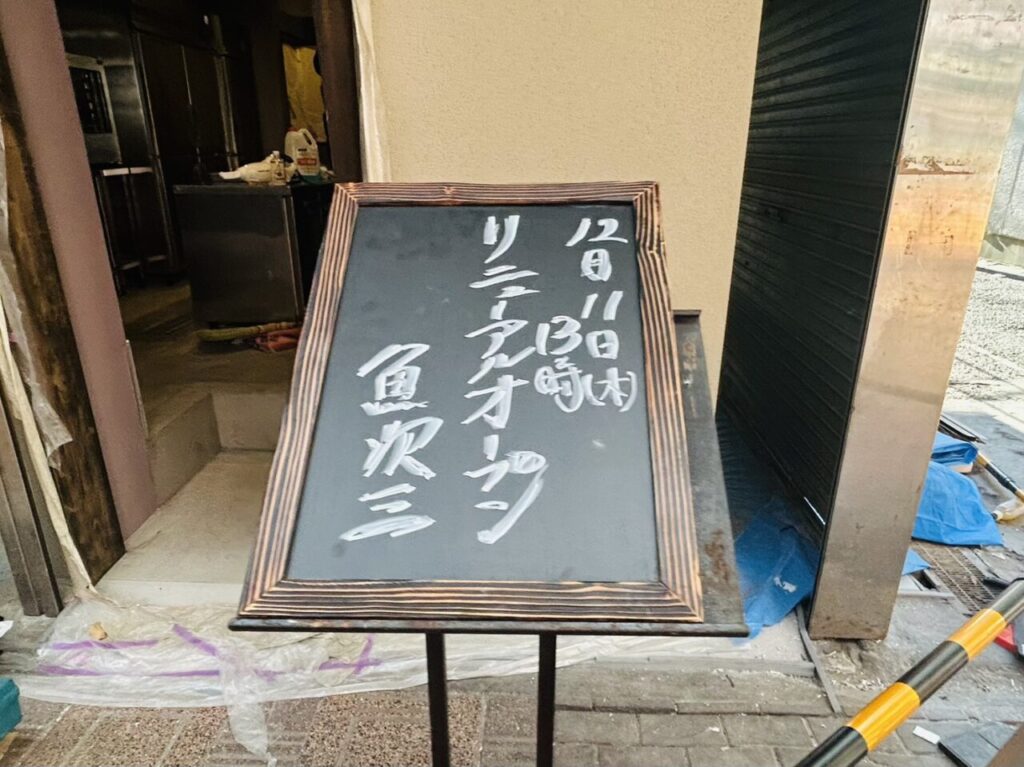 12月11日(木)
13時
リニューアルオープン
魚次三